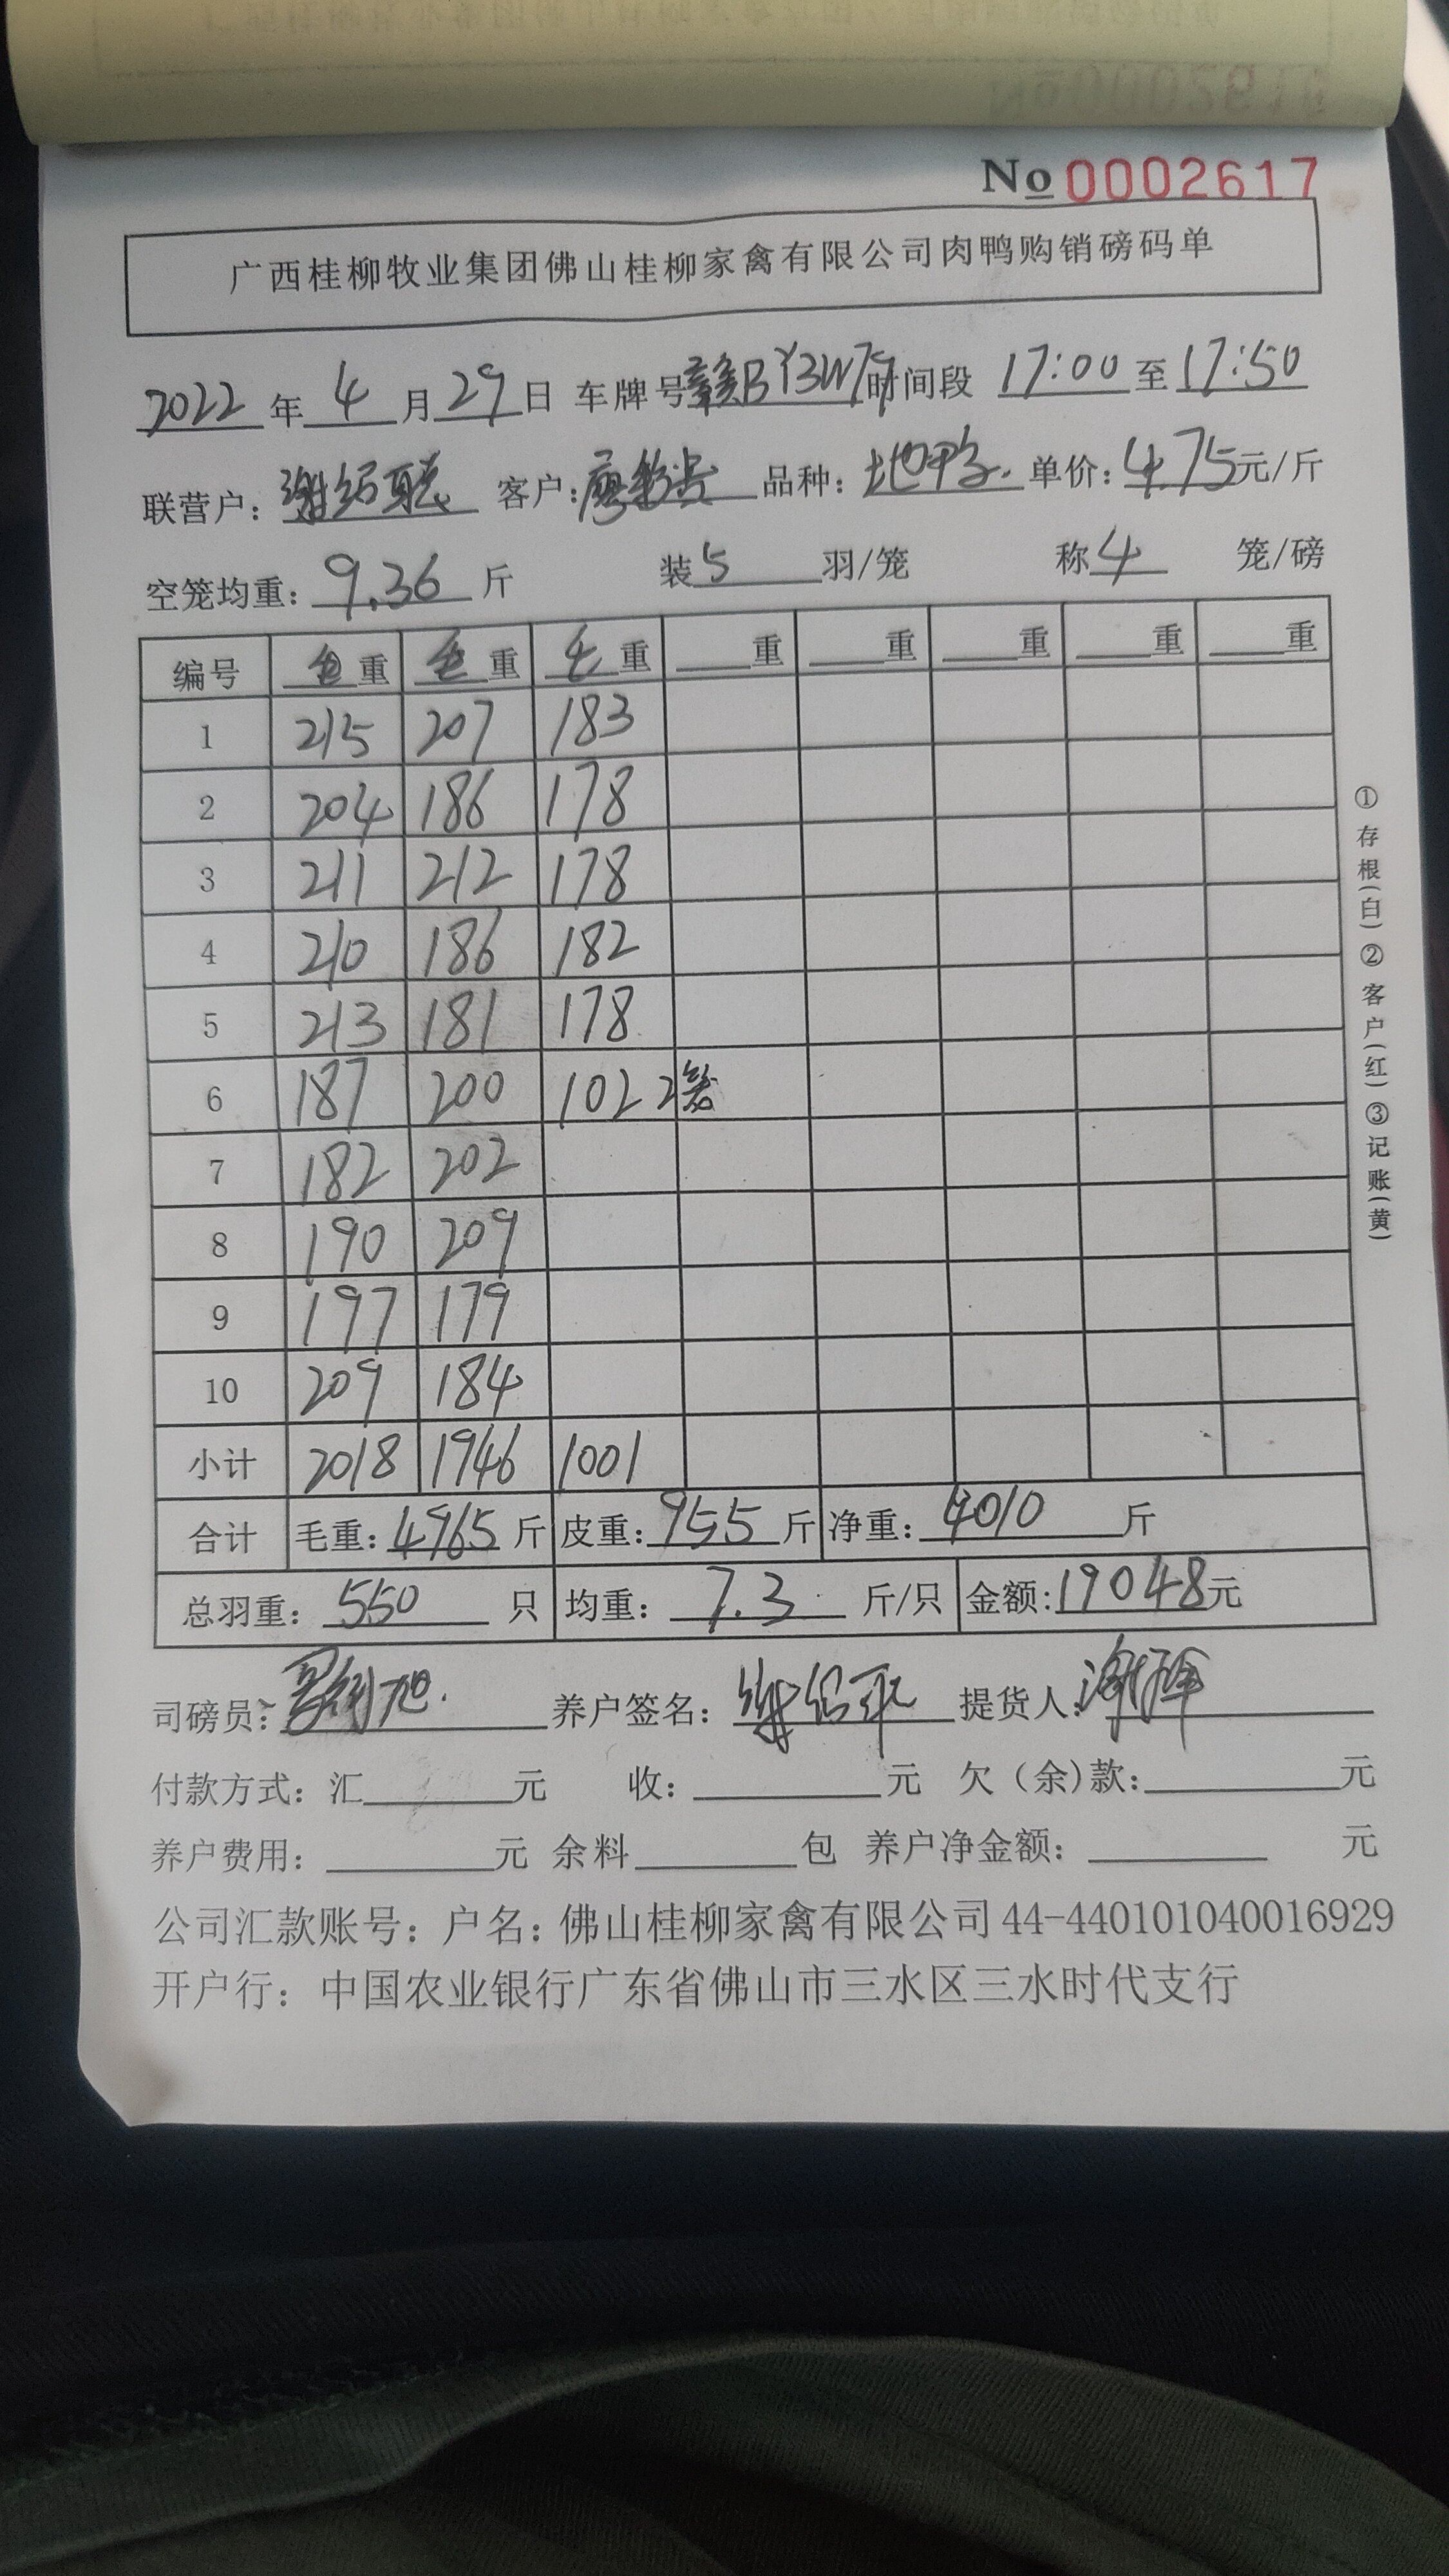 No 0002617
广西桂柳牧业集团佛山桂柳家禽有限公司肉鸭购销磅码单
2022 年 4 月 29 日 车牌号 赣BY3W79 时间段 17:00 至 17:50
联营户: 谢绍聪 客户: 廖彩贵 品种: 地甲子. 单价: 4.75 元/斤
空笼均重: 9.36 斤 装 5 羽/笼 称 4 笼/磅
编号 毛重 毛重 毛重 重 重 重 重 重
1 215 207 183
2 204 186 178
3 211 212 178
4 210 186 182
5 213 181 178
6 187 200 102 2笼
7 182 202
8 190 209
9 197 179
10 209 184
小计 2018 1946 1001
合计 毛重: 4965 斤 皮重: 955 斤 净重: 4010 斤
总羽重: 550 只 均重: 7.3 斤/只 金额: 19048 元
司磅员: 养户签名: 提货人:
付款方式: 汇 元 收: 元 欠(余)款: 元
养户费用: 元 余料 包 养户净金额: 元
公司汇款账号: 户名: 佛山桂柳家禽有限公司 44-440101040016929
开户行: 中国农业银行广东省佛山市三水区三水时代支行
①存根(白)②客户(红)③记账(黄)